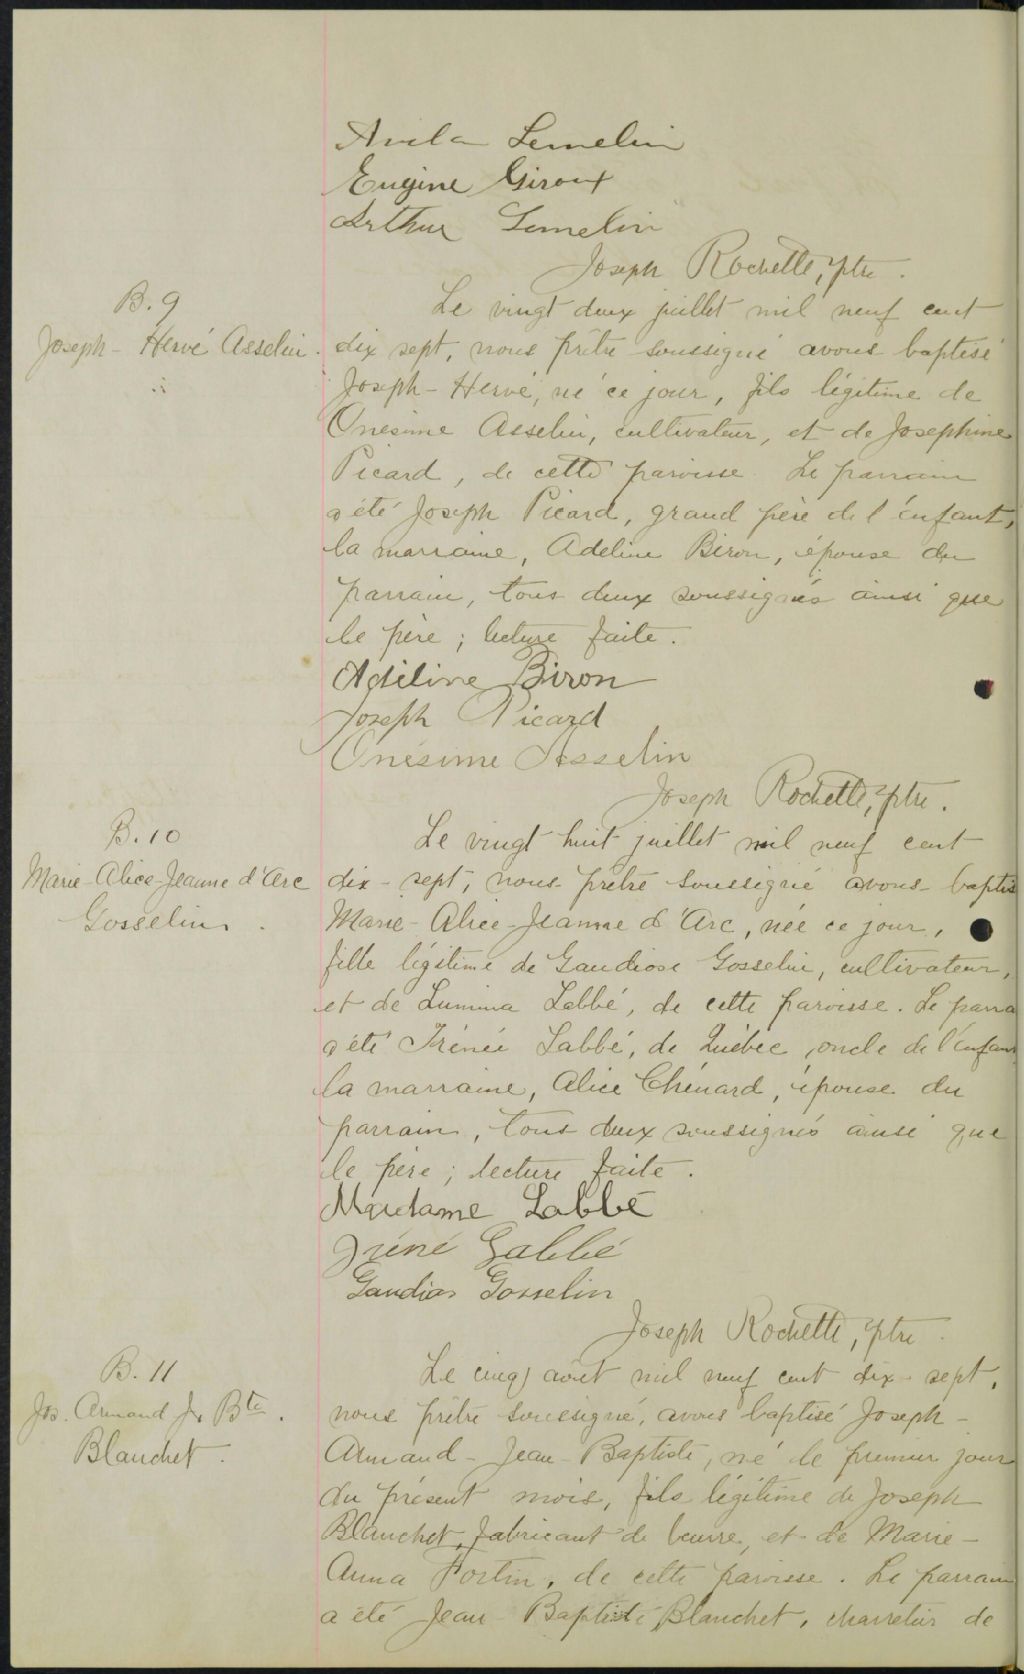 Avila Lemelin
Eugène Giroux
Arthur Lemelin
Joseph Rochette, ptre.
B. 9
Joseph-Hervé Asselin.
Le vingt deux juillet mil neuf cent
dix sept, nous prêtre soussigné avons baptisé
Joseph-Hervé, né ce jour, fils légitime de
Onésime Asselin, cultivateur, et de Josephine
Picard, de cette paroisse. Le parrain
a été Joseph Picard, grand père de l'enfant,
la marraine, Adeline Biron, épouse du
parrain, tous deux soussignés ainsi que
le père; lecture faite.
Adéline Biron
Joseph Picard
Onésime Asselin
Joseph Rochette, ptre.
B. 10
Marie-Alice-Jeanne d'Arc
Gosselin.
Le vingt huit juillet mil neuf cent
dix-sept, nous prêtre soussigné avons baptis
Marie-Alice-Jeanne d'Arc, née ce jour,
fille légitime de Gaudiose Gosselin, cultivateur,
et de Lumina Labbé, de cette paroisse. Le parra
a été Irénée Labbé, de Québec, oncle de l'enfan
la marraine, Alice Chénard, épouse du
parrain, tous deux soussignés ainsi que
le père; lecture faite.
Madame Labbé
Iréné Labbé
Gaudias Gosselin
Joseph Rochette, ptre.
B. 11
Jos. Armand Jn Bte.
Blanchet.
Le cinq août mil neuf cent dix-sept,
nous prêtre soussigné, avons baptisé Joseph-
Armand-Jean-Baptiste, né le premier jour
du présent mois, fils légitime de Joseph
Blanchet, fabricant de beurre, et de Marie-
Anna Fortin, de cette paroisse. Le parrain
a été Jean-Baptiste Blanchet, charretier de